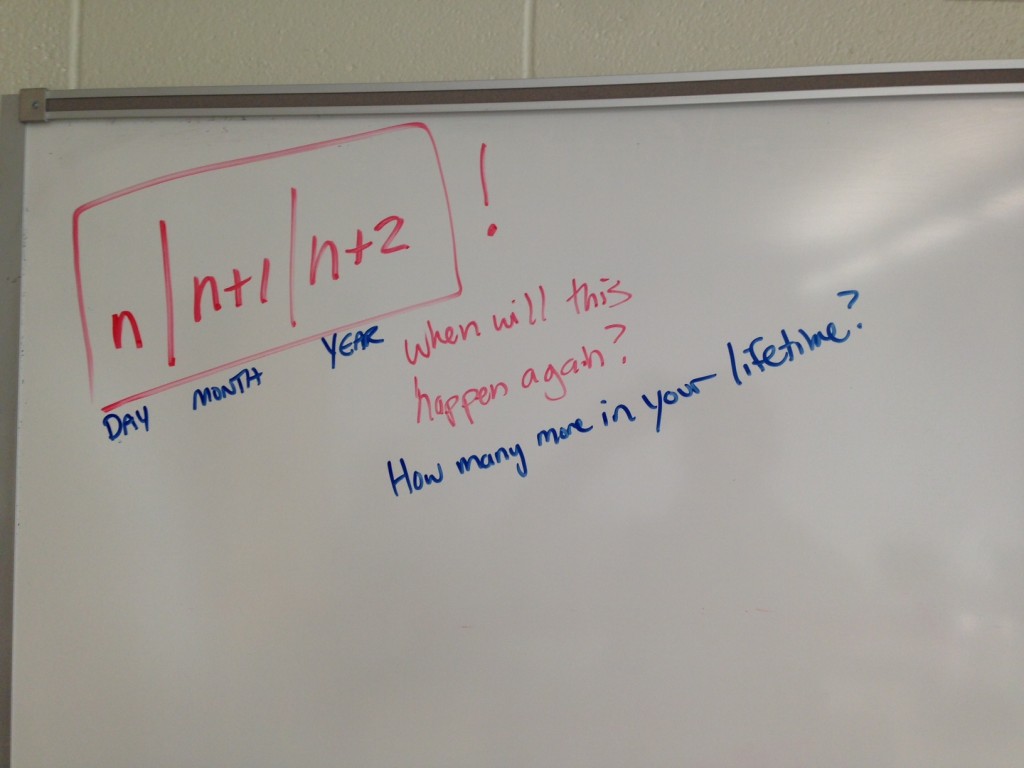 n | n+1 | n+2 !
DAY MONTH YEAR
when will this
happen again?
How many more in your lifetime?